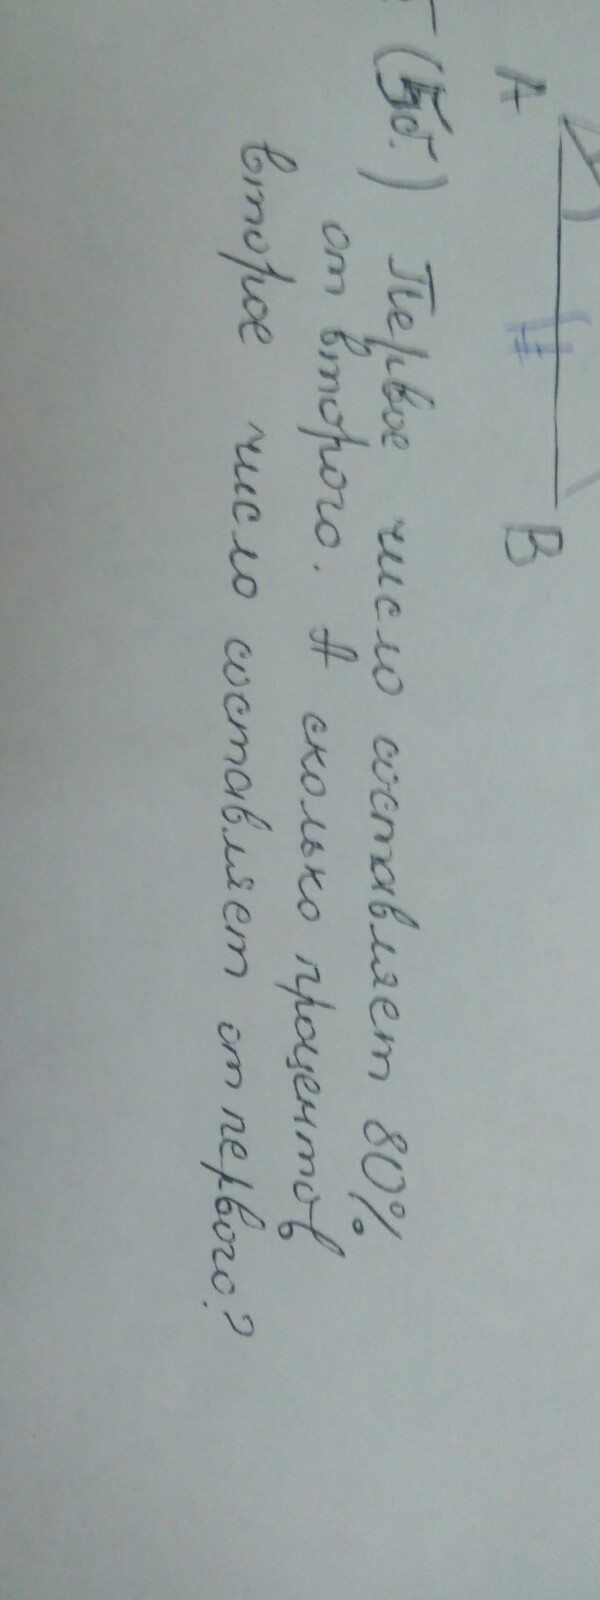 A B
(5б.) Первое число составляет 80%
от второго. А сколько процентов
второе число составляет от первого?